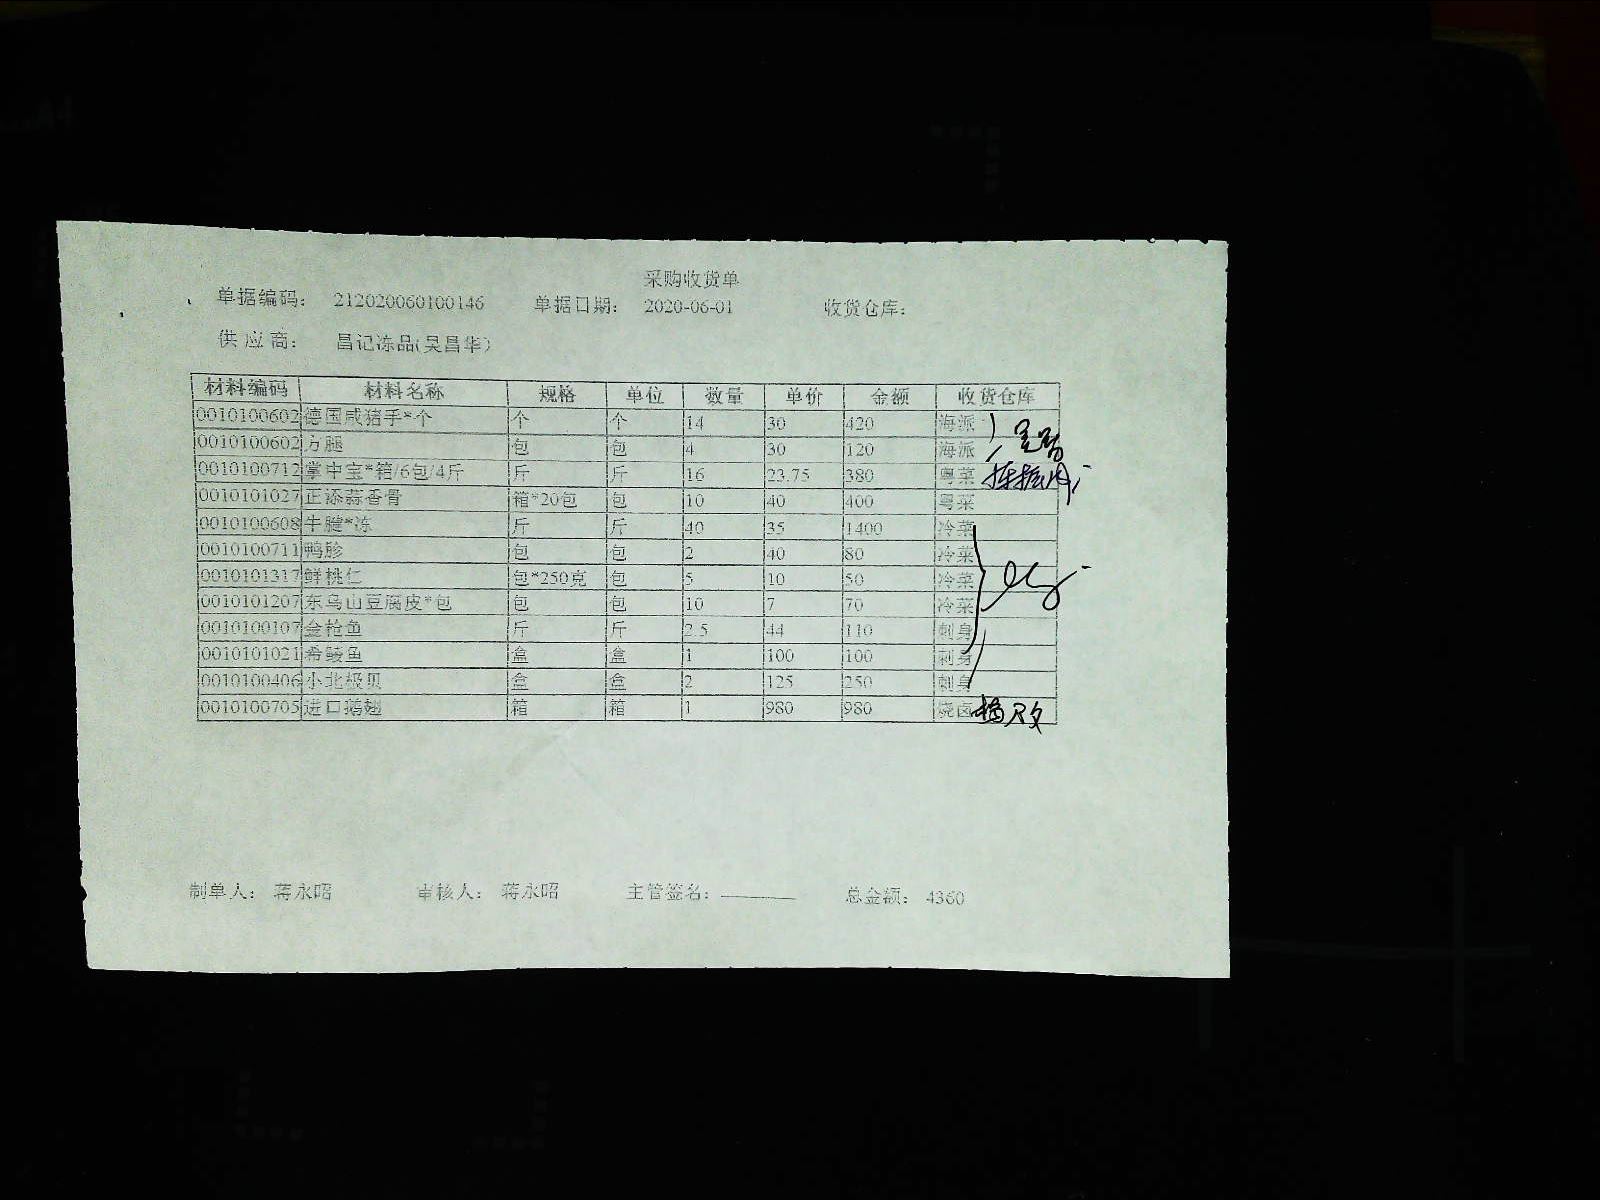 采购收货单
单据编码： 212020060100146 单据日期： 2020-06-01 收货仓库：
供 应 商： 昌记冻品(吴昌华)
材料编码 材料名称 规格 单位 数量 单价 金额 收货仓库
0010100602 德国咸猪手*个 个 个 14 30 420 海派
0010100602 方腿 包 包 4 30 120 海派
0010100712 掌中宝*箱/6包/4斤 斤 斤 16 23.75 380 粤菜
0010101027 正添蒜香骨 箱*20包 包 10 40 400 粤菜
0010100608 牛腱*冻 斤 斤 40 35 1400 冷菜
0010100711 鸭胗 包 包 2 40 80 冷菜
0010101317 鲜桃仁 包*250克 包 5 10 50 冷菜
0010101207 东乌山豆腐皮*包 包 包 10 7 70 冷菜
0010100107 金枪鱼 斤 斤 2.5 44 110 刺身
0010101021 希鲮鱼 盒 盒 1 100 100 刺身
0010100406 小北极贝 盒 盒 2 125 250 刺身
0010100705 进口鹅翅 箱 箱 1 980 980 烧卤
制单人： 蒋永昭 审核人： 蒋永昭 主管签名： 总金额： 4360